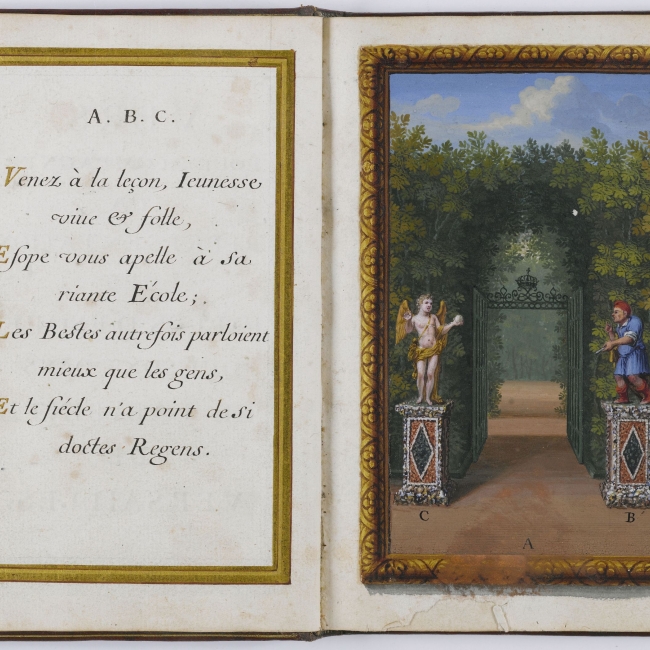 A. B. C.
Venez à la leçon, Ieunesse
viue & folle,
Esope vous apelle à sa
riante École;
Les Bestes autrefois parloient
mieux que les gens,
Et le siécle n'a point de si
doctes Regens.
C
B
A